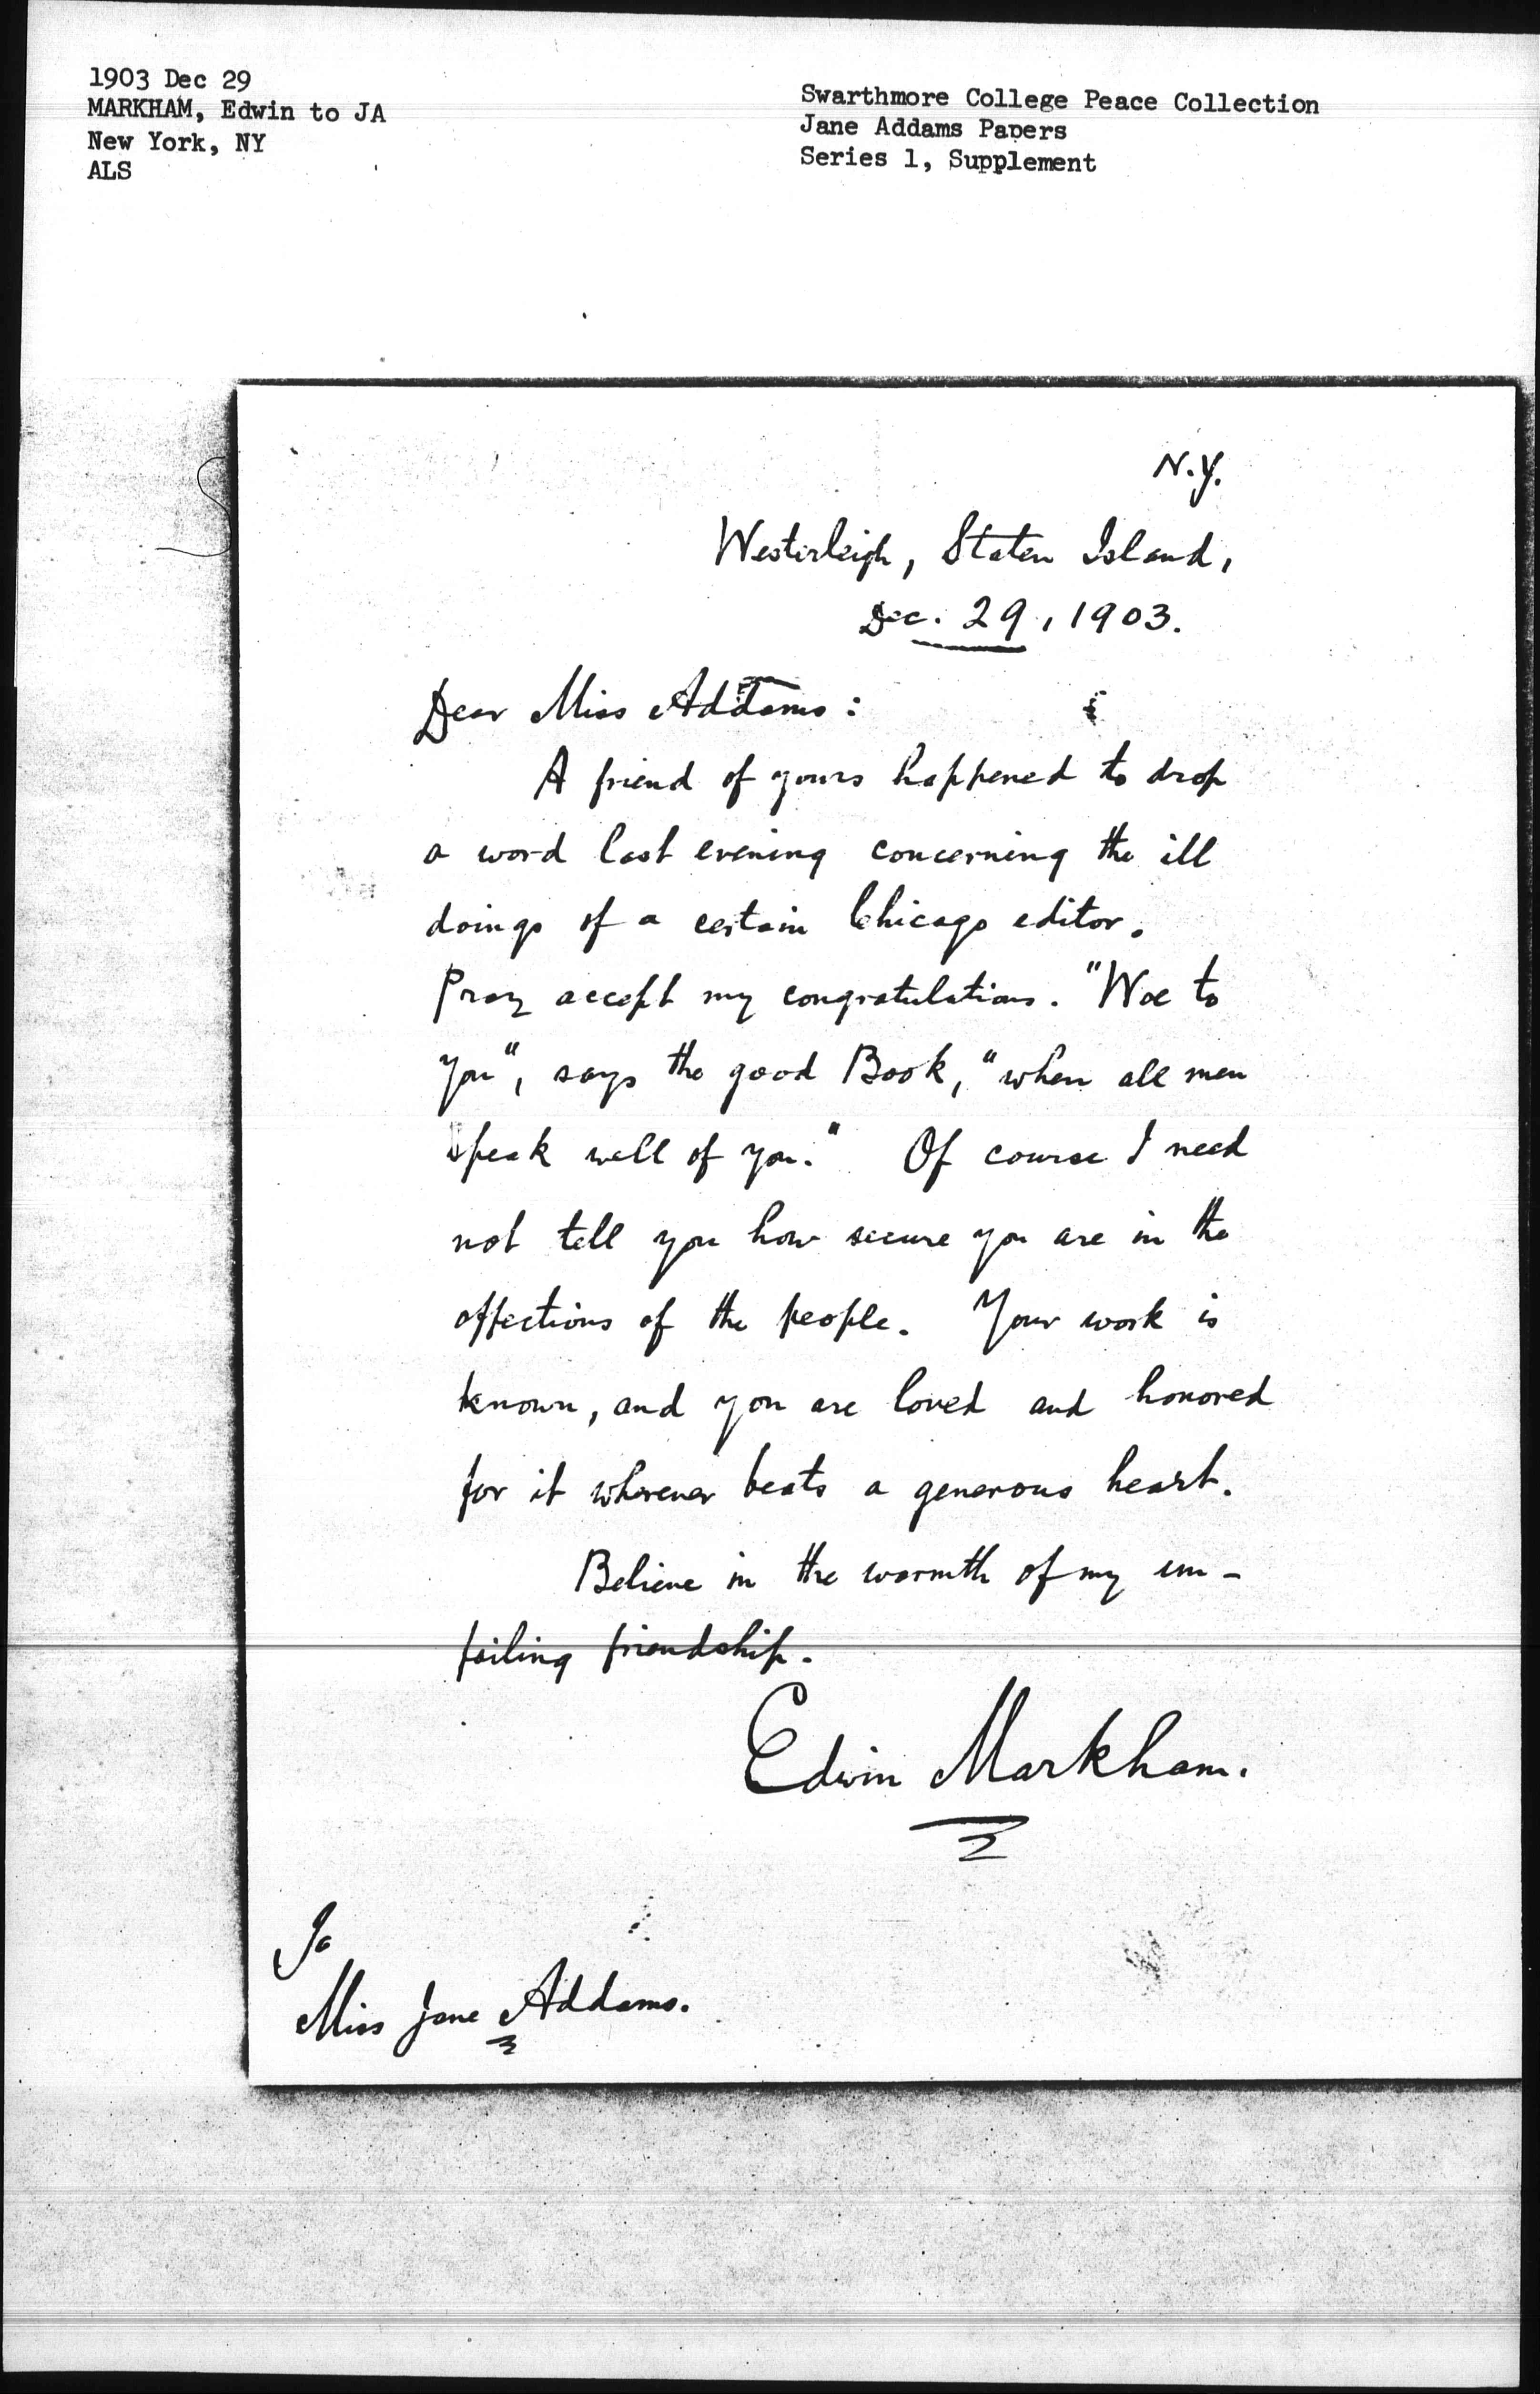 1903 Dec 29
MARKHAM, Edwin to JA
New York, NY
ALS
Swarthmore College Peace Collection
Jane Addams Papers
Series 1, Supplement
N.Y.
Westerleigh, Staten Island,
Dec. 29, 1903.
Dear Miss Addams:
A friend of yours happened to drop
a word last evening concerning the ill
doings of a certain Chicago editor.
Pray accept my congratulations. "Woe to
you", says the good Book, "when all men
speak well of you." Of course I need
not tell you how secure you are in the
affections of the people. Your work is
known, and you are loved and honored
for it wherever beats a generous heart.
Believe in the warmth of my un-
failing friendship.
Edwin Markham.
To
Miss Jane Addams.